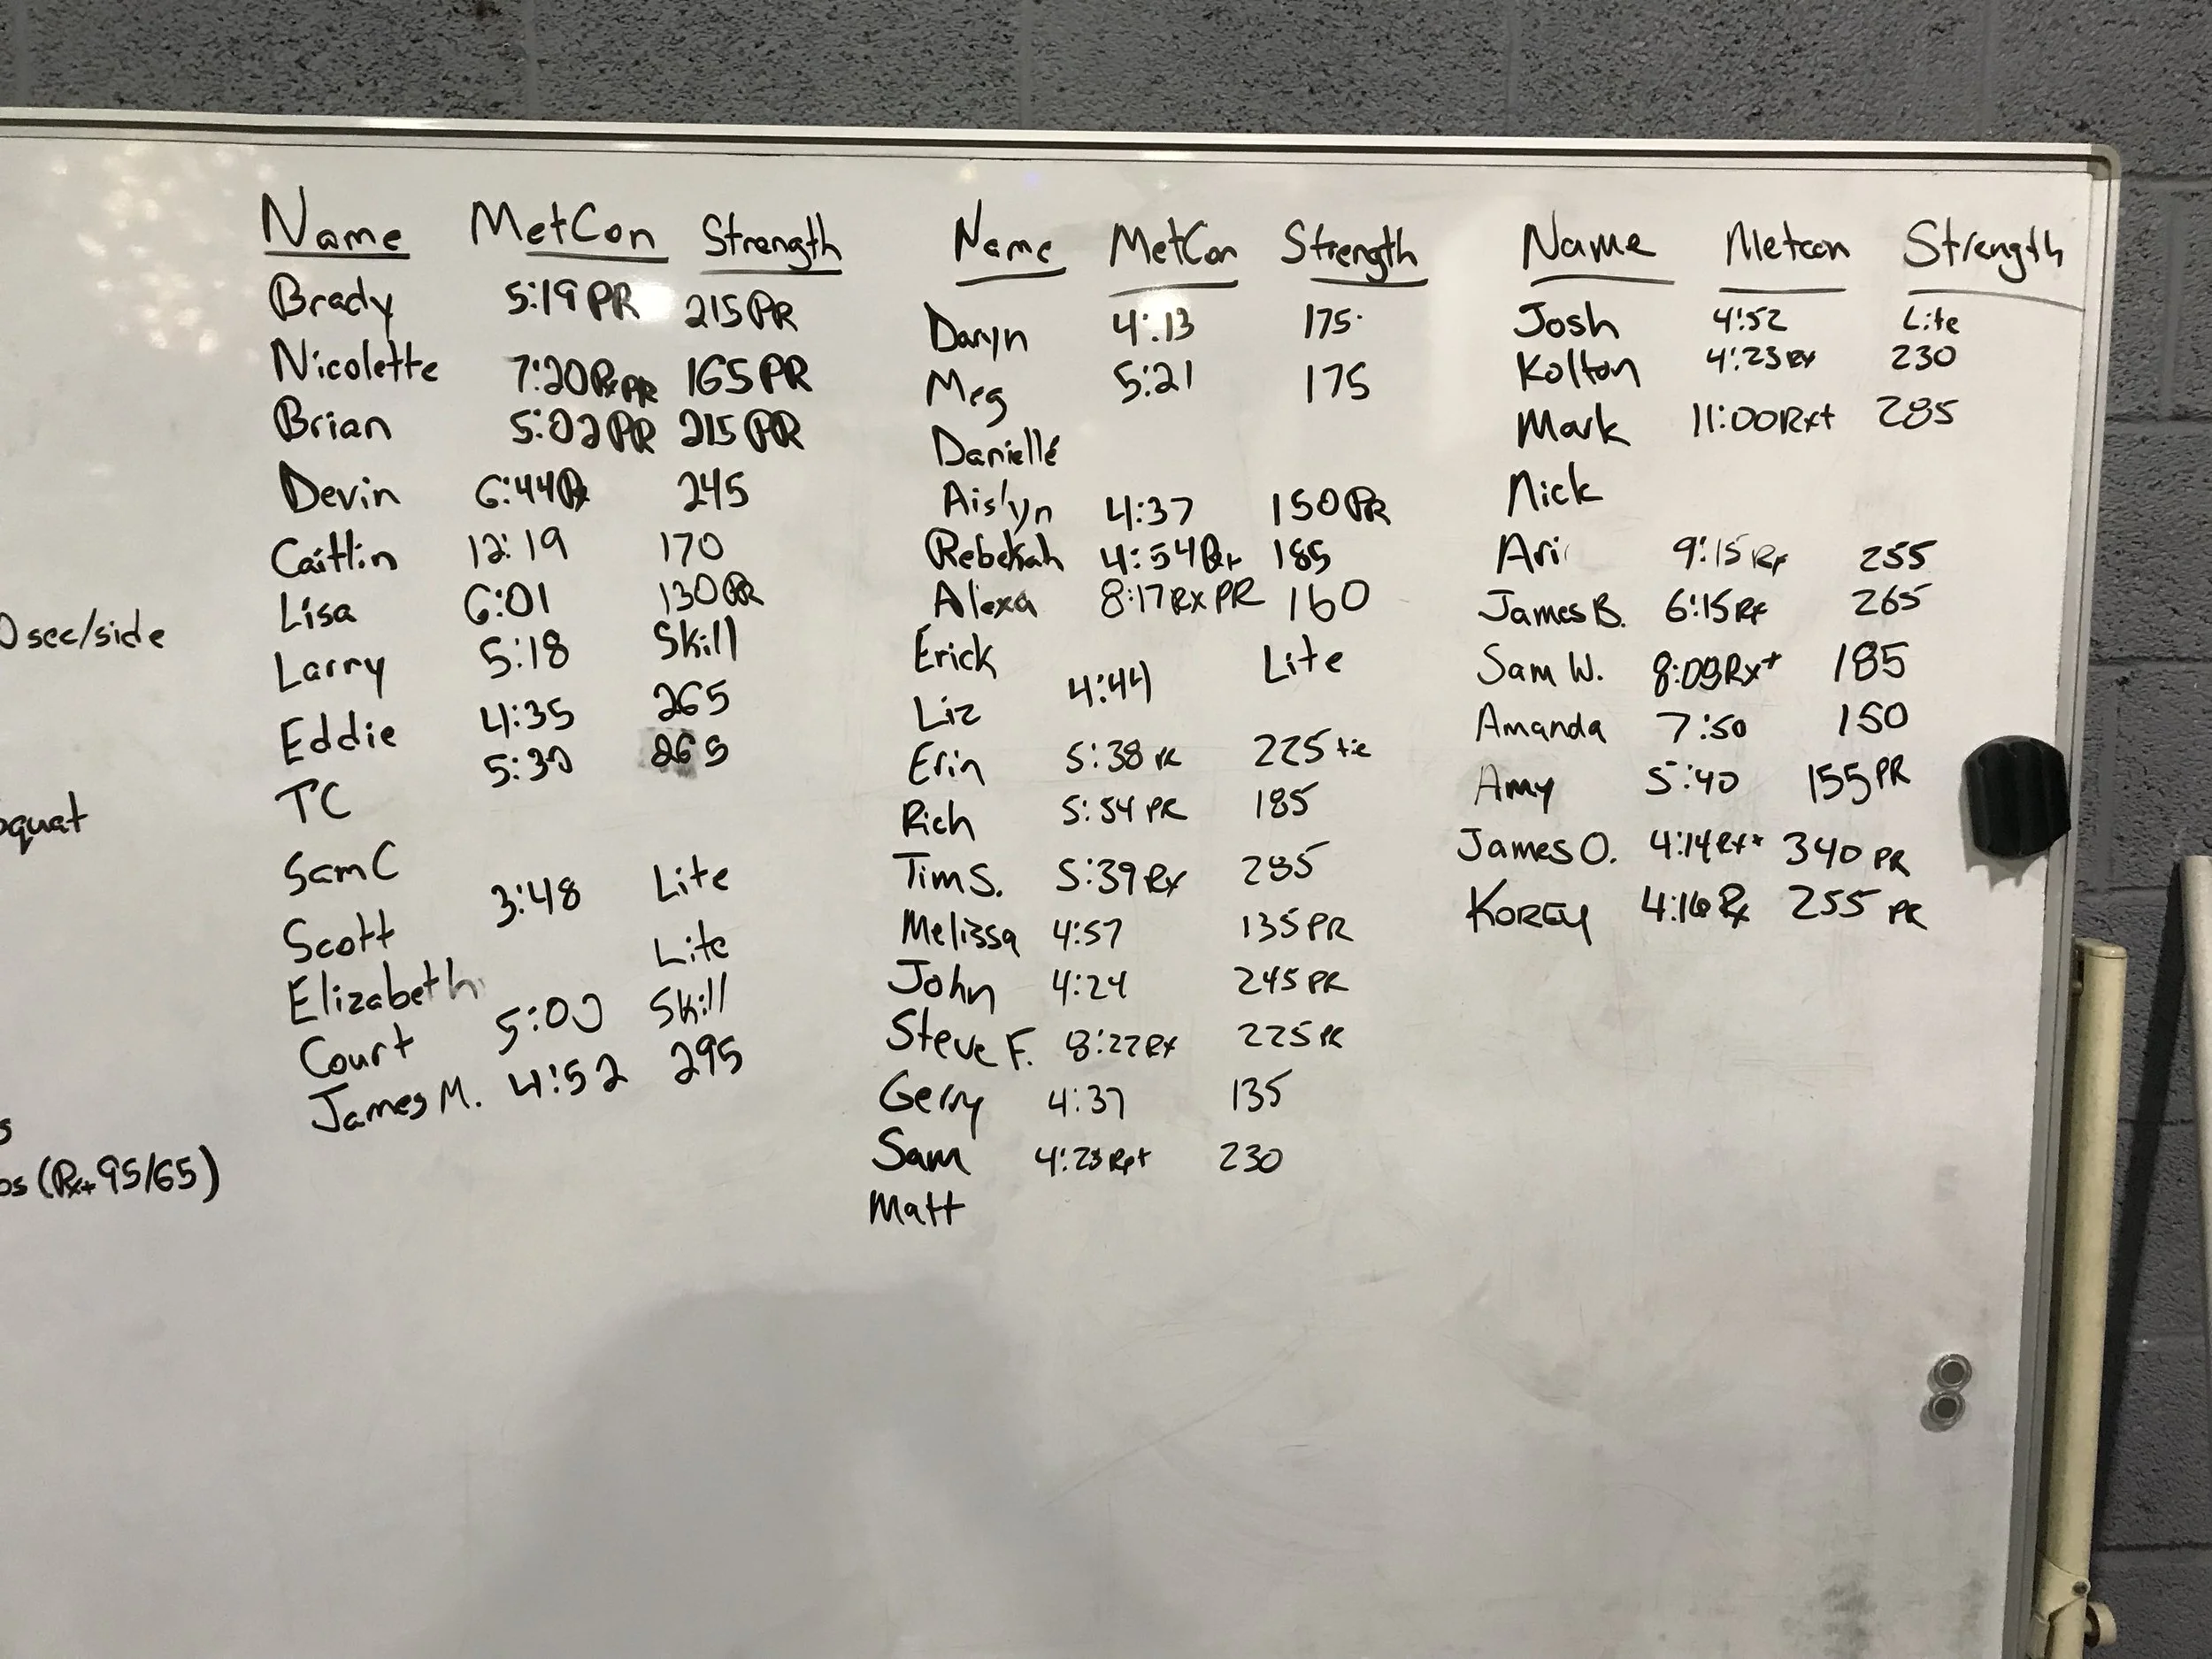 Name MetCon Strength
Brady 5:19 PR 215 PR
Nicolette 7:20 Rx PR 165 PR
Brian 5:02 PR 215 PR
Devin 6:44 Rx 245
Caitlin 12:19 170
Lisa 6:01 130 PR
Larry 5:18 Skill
Eddie 4:35 265
TC 5:30 265
Sam C
Scott 3:48 Lite
Elizabeth Lite
Court 5:00 Skill
James M. 4:52 295
Name MetCon Strength
Daryn 4:13 175
Meg 5:21 175
Danielle
Aislyn 4:37 150 PR
Rebekah 4:54 Rx 185
Alexa 8:17 Rx PR 160
Erick
Liz 4:44 Lite
Erin 5:38 PR 225 tie
Rich 5:54 PR 185
Tim S. 5:39 Rx 285
Melissa 4:57 135 PR
John 4:24 245 PR
Steve F. 8:22 Rx 225 PR
Gerry 4:37 135
Sam 4:23 Rx+ 230
Matt
Name Metcon Strength
Josh 4:52 Lite
Kolton 4:23 Rx 230
Mark 11:00 Rx+ 285
Nick
Ari 9:15 Rx 255
James B. 6:15 Rx 265
Sam W. 8:03 Rx+ 185
Amanda 7:50 150
Amy 5:40 155 PR
James O. 4:14 Rx+ 340 PR
KOREY 4:16 Rx 255 PR
0 sec/side
squat
s
ps (Rx+ 95/65)